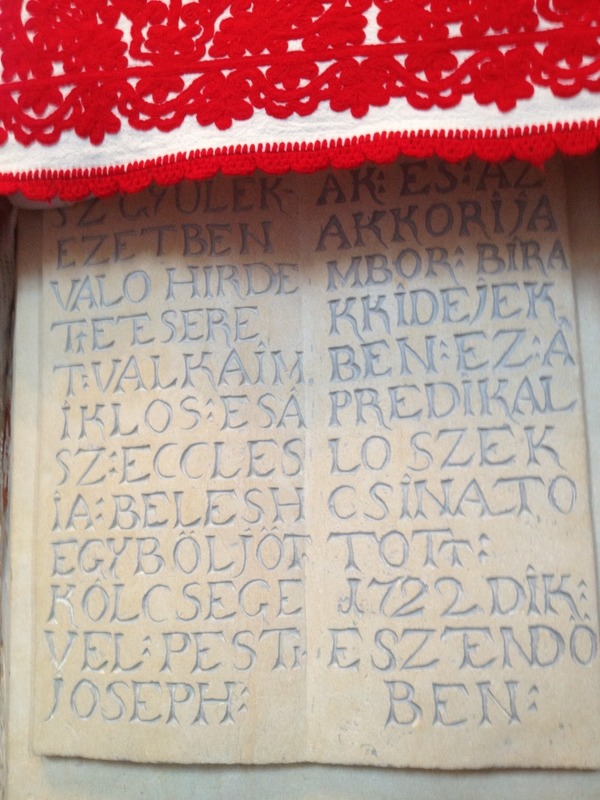 SZ GYÜLEK-
EZETBEN
VALO HIRDE
TTETESERE
T:VALKAÎM
ÎKLOS:ESÁ
SZ:ECCLES
ÎA:BELESH
EGYBÖLJÖTT
KÖLCSEGE
VEL:PESTI
JOSEPH:
AK:ES:AZ
AKKORÎJA
MBOR:BÎRA
KKÎDEJEK
BEN:EZ:Â
PREDÎKAL
LO SZEK
CSÎNATO
TOTT:
1722 DÎK:
ESZTENDÖ
BEN: